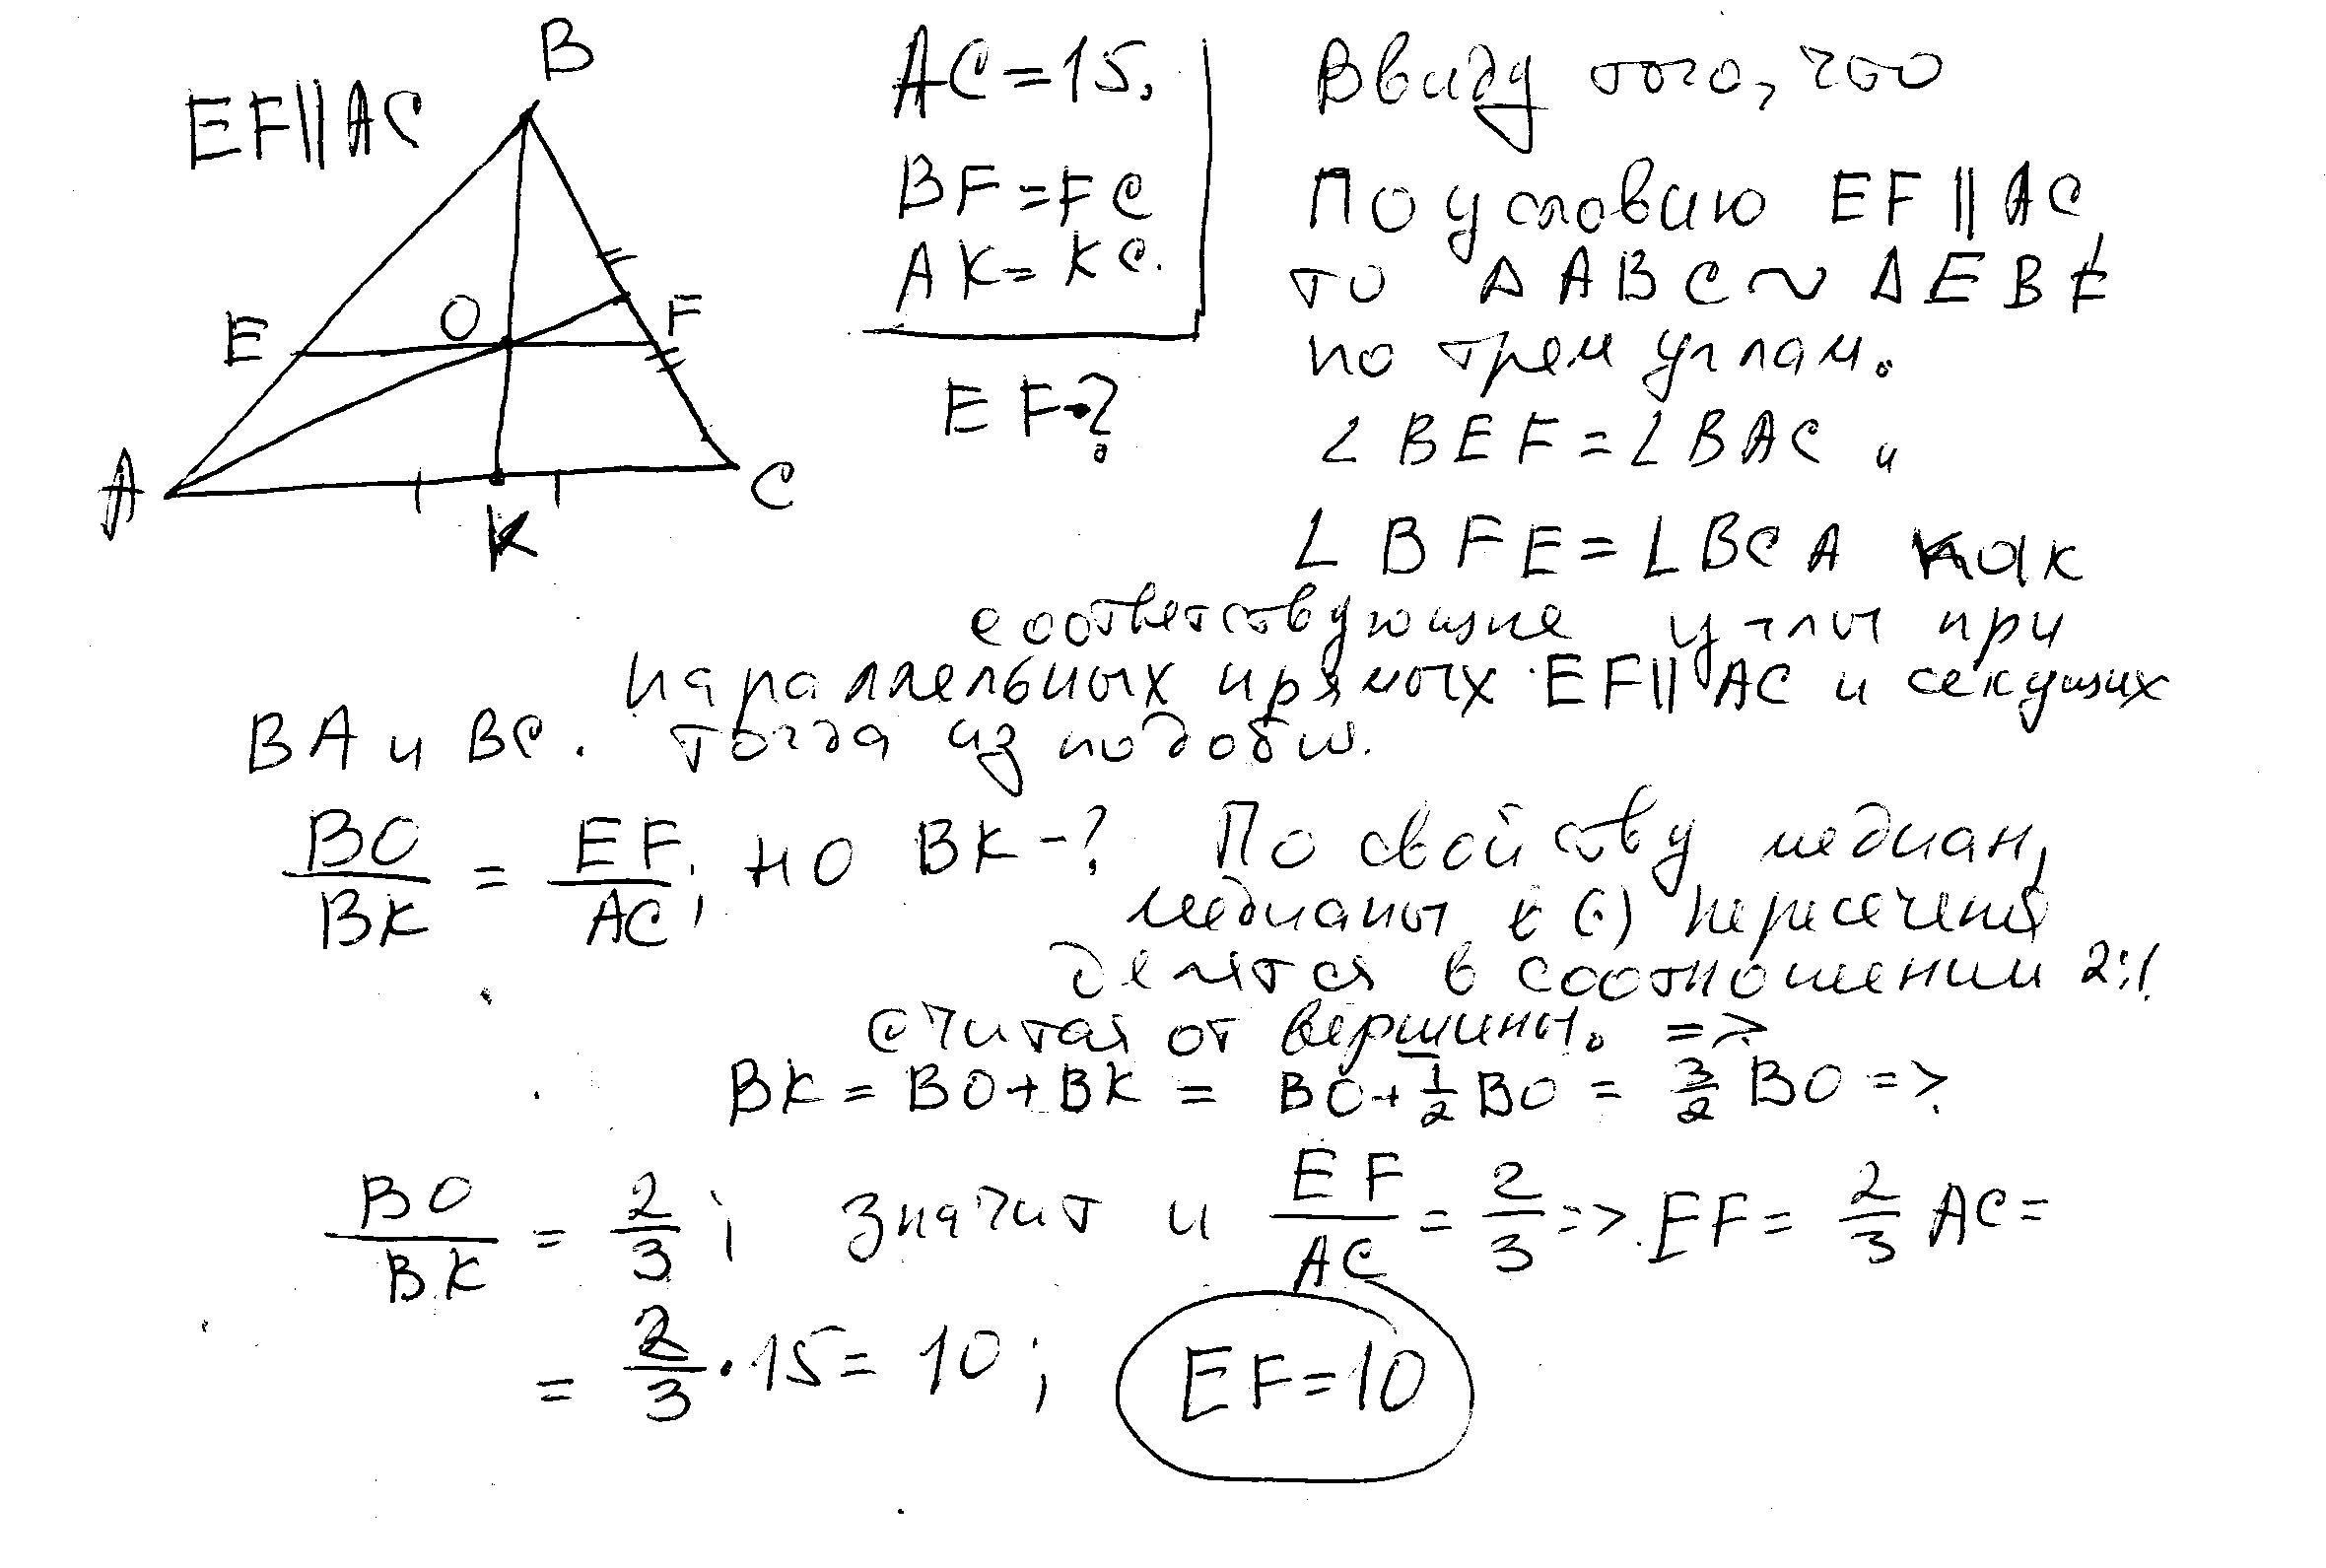 B
EF||AC
E
O
F
A
K
C
AC=15.
BF=FC
AK=KC.
EF-?
Ввиду того, что
По условию EF||AC,
то ΔABC~ΔEBF
по трем углам.
∠BEF=∠BAC и
∠BFE=∠BCA как
соответствующие углы при
параллельных прямых EF||AC и секущих
BA и BC. тогда из подобия.
BO/BK = EF/AC; но BK-? По свойству медиан,
медианы в (·) пересечения
делятся в соотношении 2:1.
считая от вершины. =>
BK = BO+BK = BO+1/2BO = 3/2 BO =>
BO/BK = 2/3; значит и EF/AC = 2/3 => EF = 2/3 AC =
= 2/3·15=10; EF=10